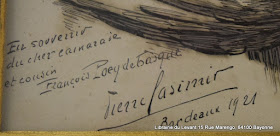 En souvenir
du cher camarade
et cousin
François Poeydebasque
Pierre Casimir
Bordeaux 1921
Librairie du Levant 15 Rue Marengo 64100 Bayonne